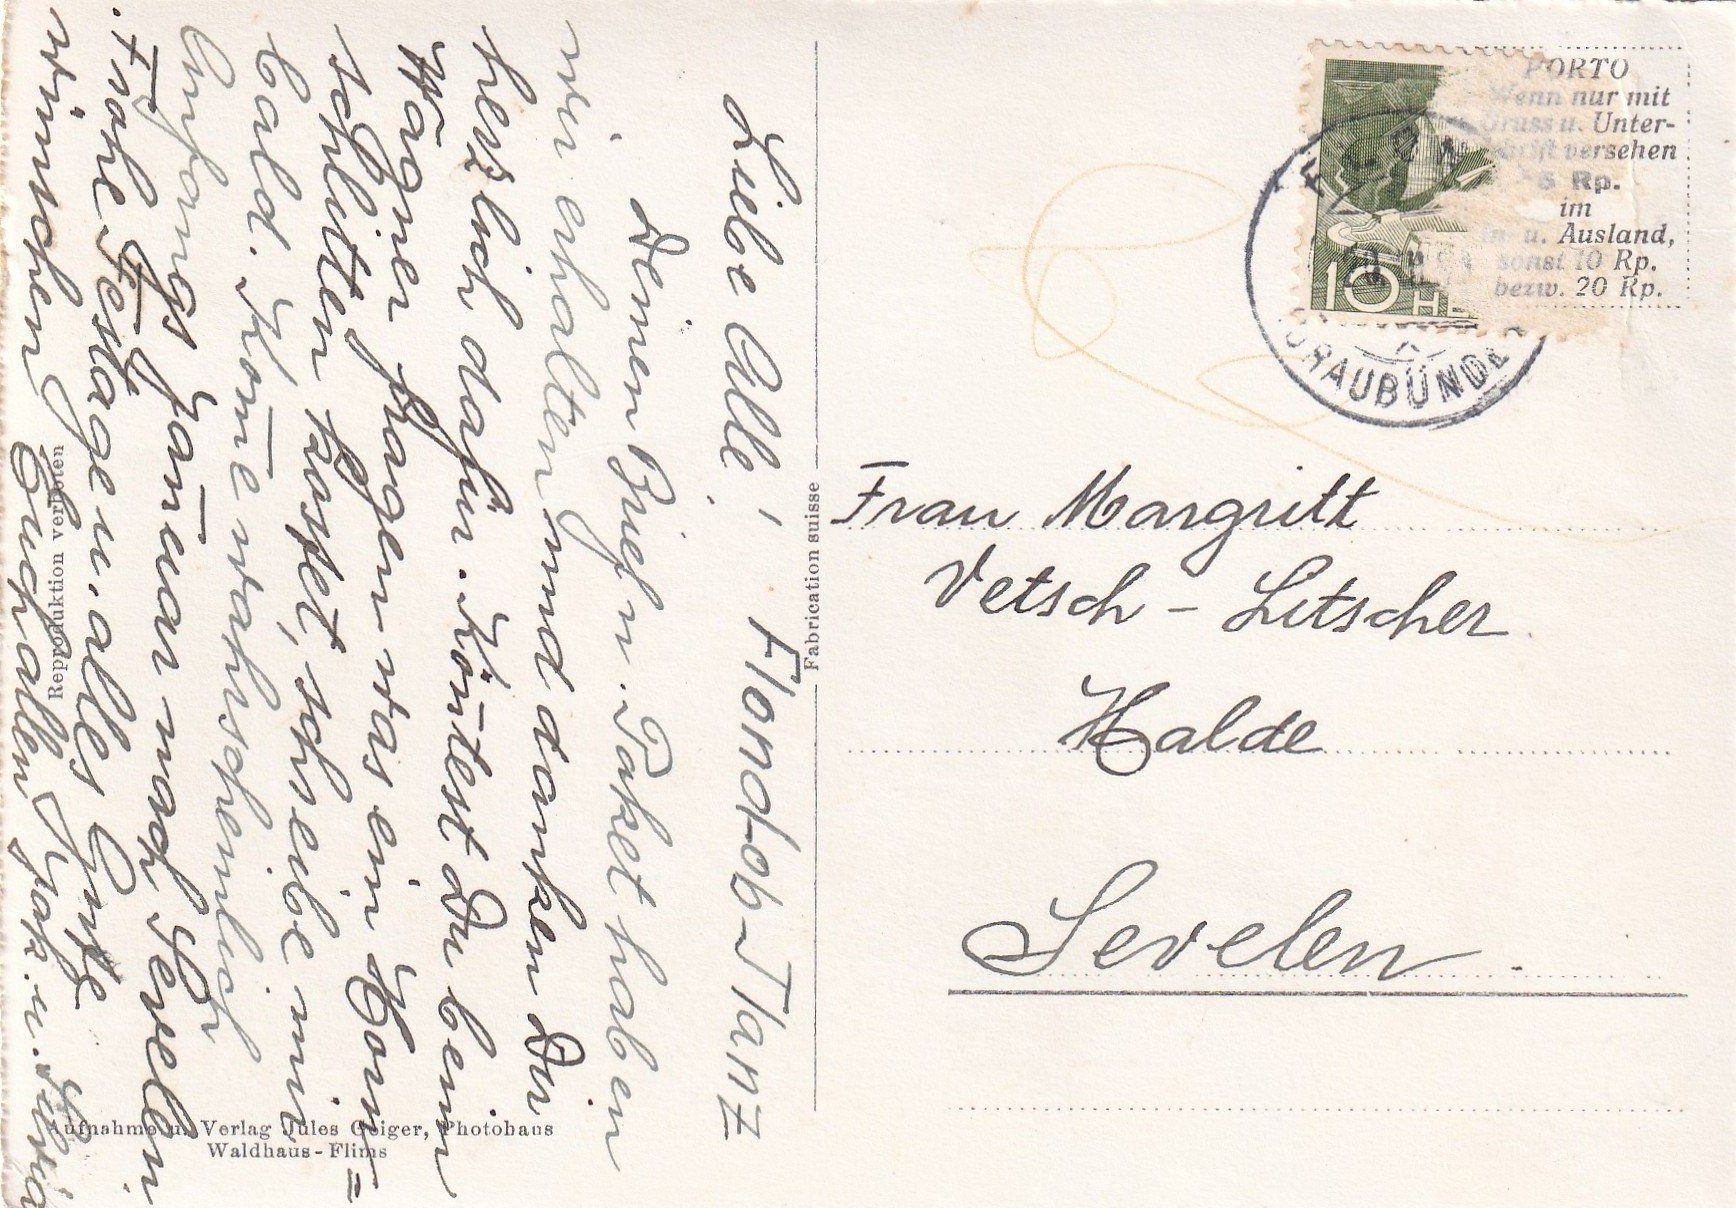 Liebe Alle! Flond-ob-Ilanz
Deinen Brief u. Paket haben
wir erhalten und danken Dir
herzlich dafür. Kön̄test Du beim
Wagner fragen was ein Horn=
schlitten kostet, schreibe mir
bald. Kom̄e wahrscheinlich
Anfangs Januar nach Sevelen
. Frohe Festage u. alles Gute
wünschen Euch allen Jak. u. Silvia
Reproduktion verboten
Aufnahme u. Verlag Jules Geiger, Photohaus
Waldhaus-Flims
Fabrication suisse
PORTO
Wenn nur mit
Gruss u. Unter-
schrift versehen
5 Rp.
im
In- u. Ausland,
sonst 10 Rp.
bezw. 20 Rp.
10 HEL
GRAUBÜNDEN
Frau Margritt
Vetsch - Litscher
Halde
Sevelen.